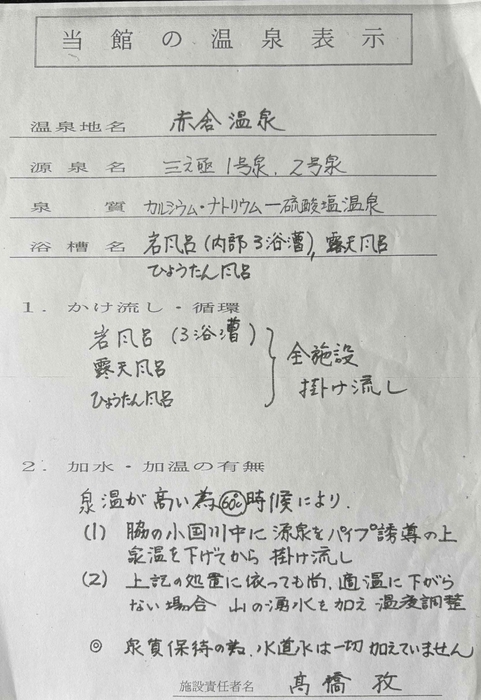 当館の温泉表示
温泉地名 赤倉温泉
源泉名 三之亟1号泉、2号泉
泉質 カルシウム・ナトリウム―硫酸塩温泉
浴槽名 岩風呂(内部3浴漕)、露天風呂
ひょうたん風呂
1. かけ流し・循環
岩風呂(3浴漕)
露天風呂
ひょうたん風呂
全施設
掛け流し
2. 加水・加温の有無
泉温が高い為60℃時候により、
(1) 脇の小国川中に源泉をパイプ誘導の上
泉温を下げてから掛け流し
(2) 上記の処置に依っても尚、適温に下がら
ない場合 山の湧水を加え温度調整
◎ 泉質保持の為、水道水は一切加えていません
施設責任者名 髙橋孜